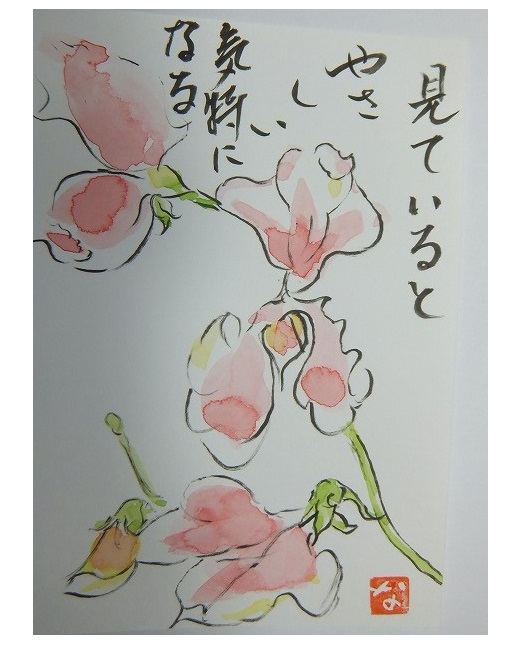 見ていると
やさしい
気持に
なる
な